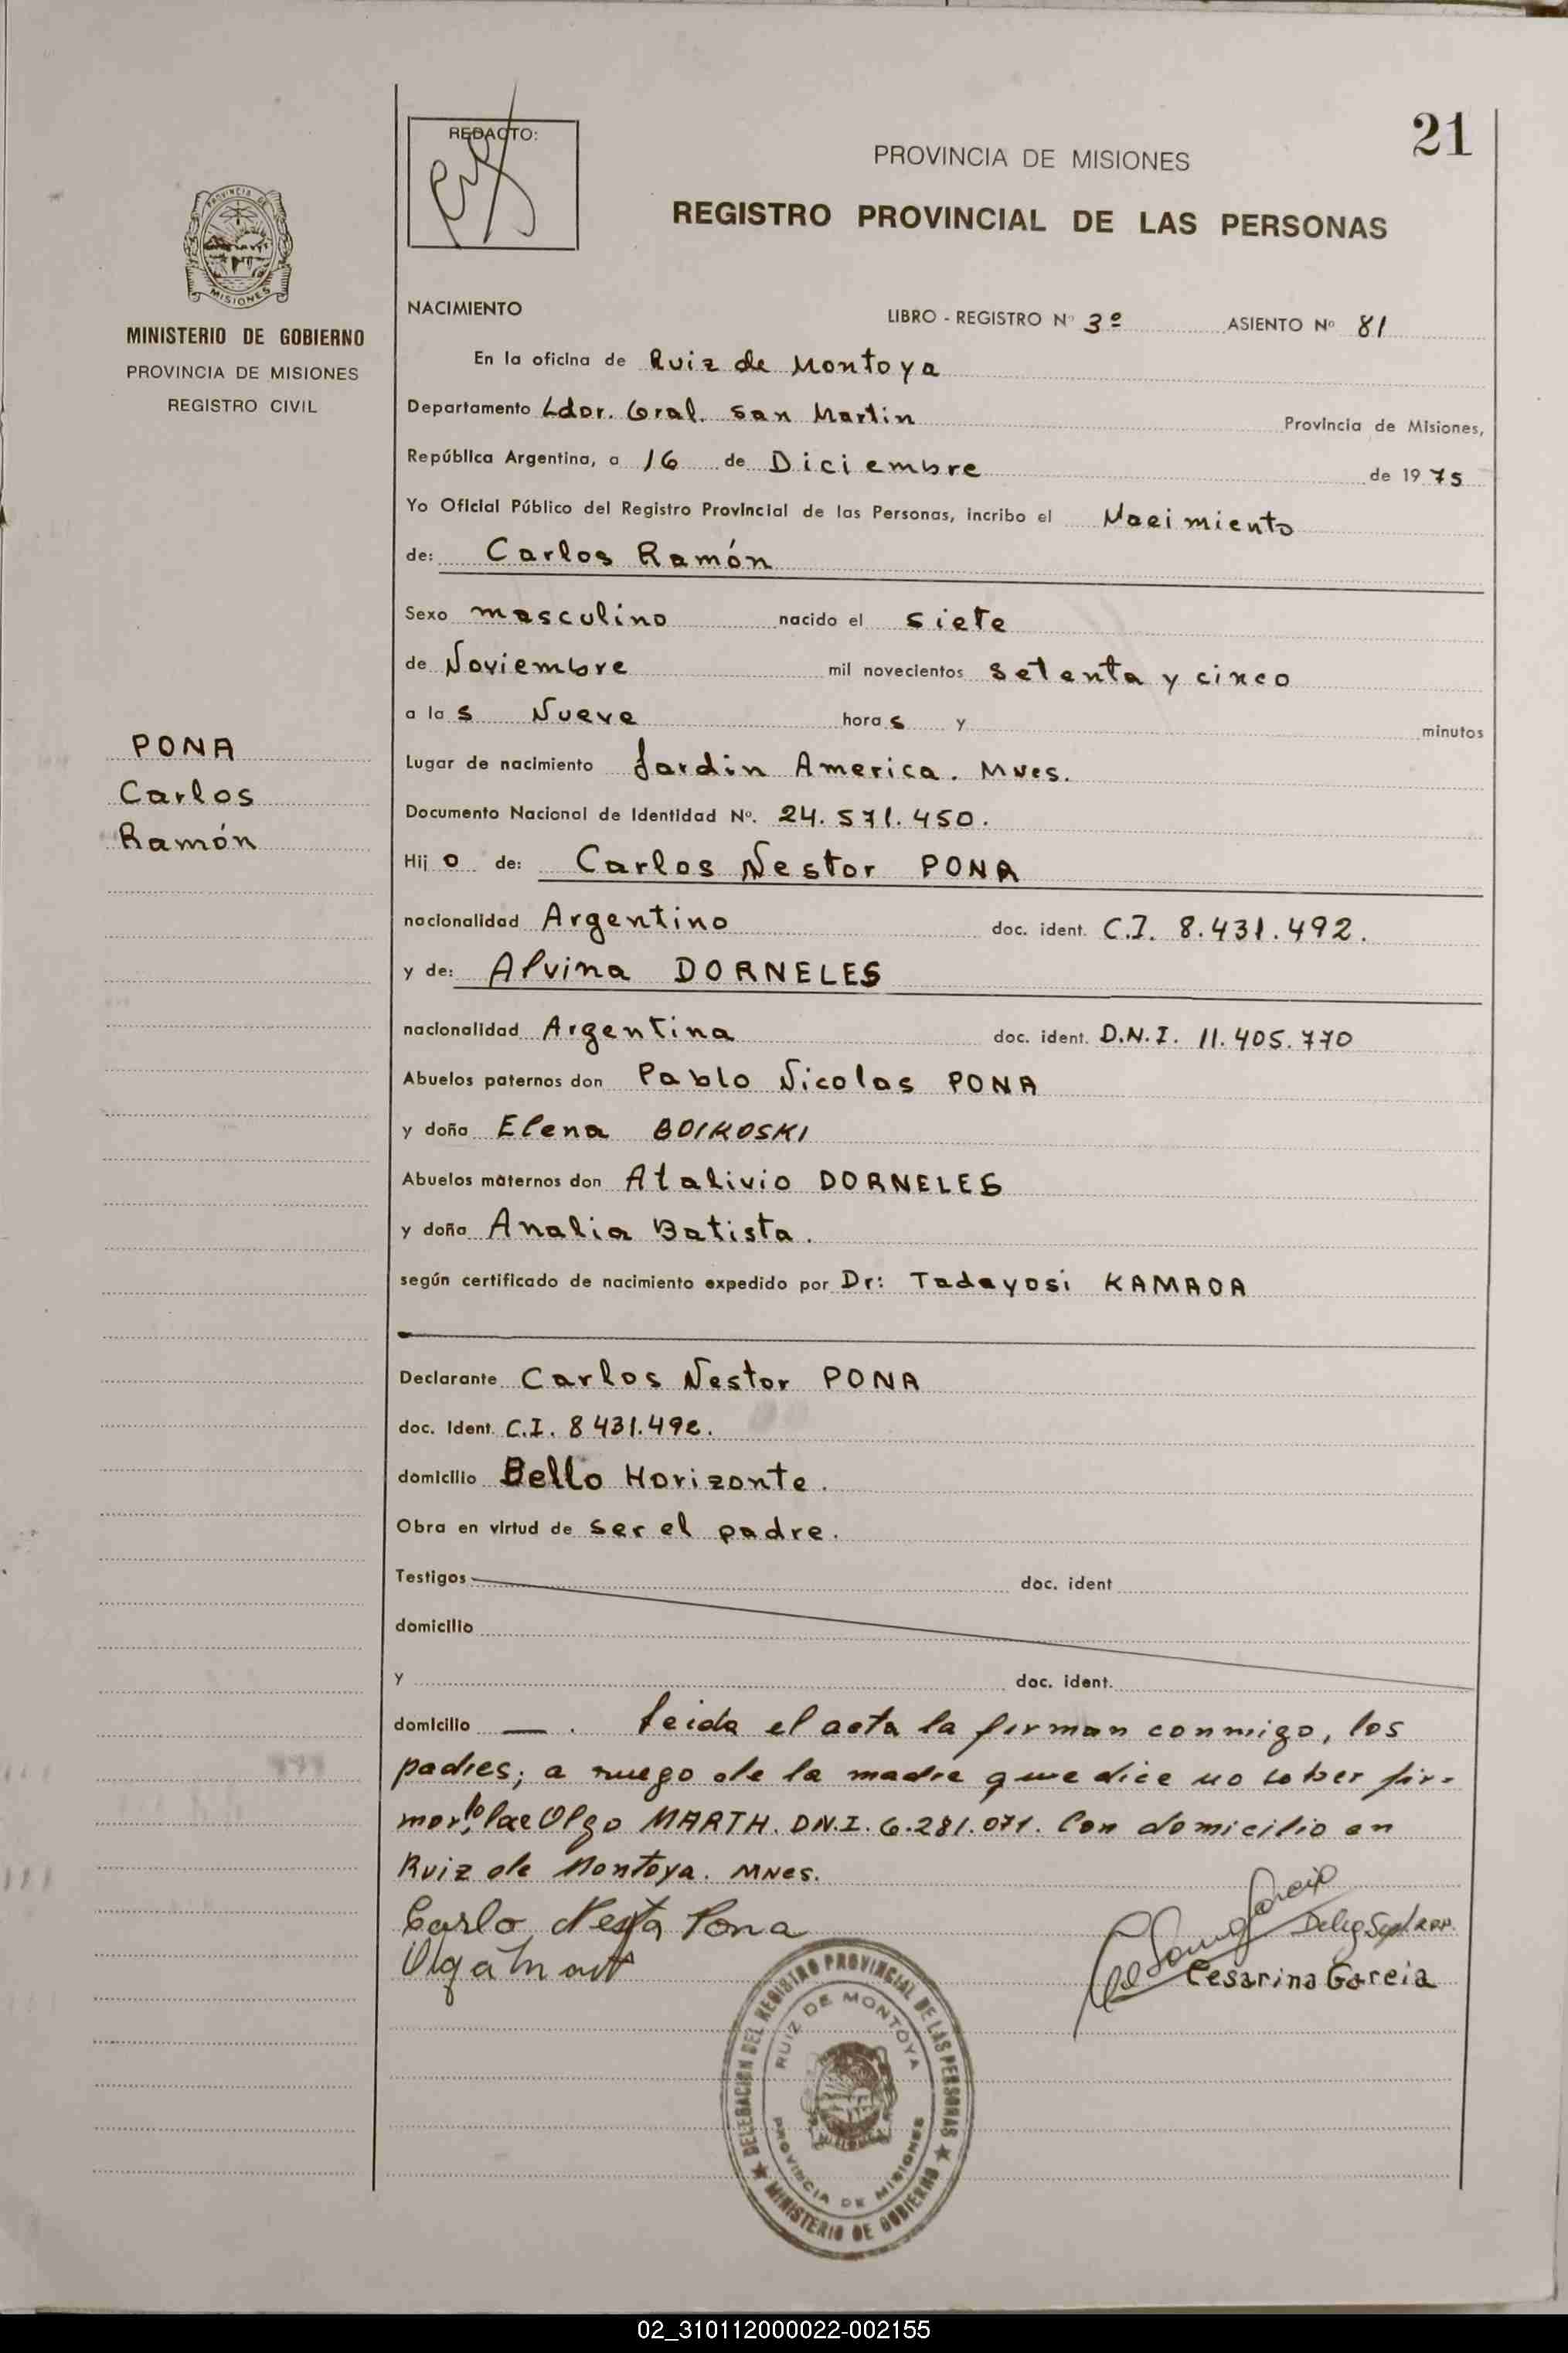 21
REDACTO:
PROVINCIA DE MISIONES
REGISTRO PROVINCIAL DE LAS PERSONAS
PROVINCIA DE
MISIONES
MINISTERIO DE GOBIERNO
PROVINCIA DE MISIONES
REGISTRO CIVIL
PONA
Carlos
Ramón
NACIMIENTO LIBRO - REGISTRO Nº 3º ASIENTO Nº 81
En la oficina de Ruiz de Montoya
Departamento Ldor. Gral. San Martin Provincia de Misiones,
República Argentina, a 16 de Diciembre de 1975
Yo Oficial Público del Registro Provincial de las Personas, incribo el Nacimiento
de: Carlos Ramón
Sexo masculino nacido el siete
de Noviembre mil novecientos setenta y cinco
a las Nueve horas y minutos
Lugar de nacimiento Jardin America. Mnes.
Documento Nacional de Identidad Nº. 24.571.450.
Hijo de: Carlos Nestor PONA
nacionalidad Argentino doc. ident. C.I. 8.431.492.
y de: Alvina DORNELES
nacionalidad Argentina doc. ident. D.N.I. 11.405.770
Abuelos paternos don Pablo Nicolas PONA
y doña Elena BOIKOSKI
Abuelos maternos don Atalivio DORNELES
y doña Analia Batista.
según certificado de nacimiento expedido por Dr: Tadayosi KAMADA
Declarante Carlos Nestor PONA
doc. Ident. C.I. 8431.492.
domicilio Bello Horizonte.
Obra en virtud de ser el padre.
Testigos doc. ident
domicilio
y doc. ident.
domicilio — . leida el acta la firman conmigo, los
padres; a ruego de la madre que dice no saber fir-
mar, lo hace Olga MARTH. D.N.I. 6.281.071. Con domicilio en
Ruiz de Montoya. MNes.
Carlo Nesta Pona
Olga Mart
Cesarina Garcia
DELEGACION DEL REGISTRO PROVINCIAL DE LAS PERSONAS
RUIZ DE MONTOYA
PROVINCIA DE MISIONES
MINISTERIO DE GOBIERNO
02_310112000022-002155